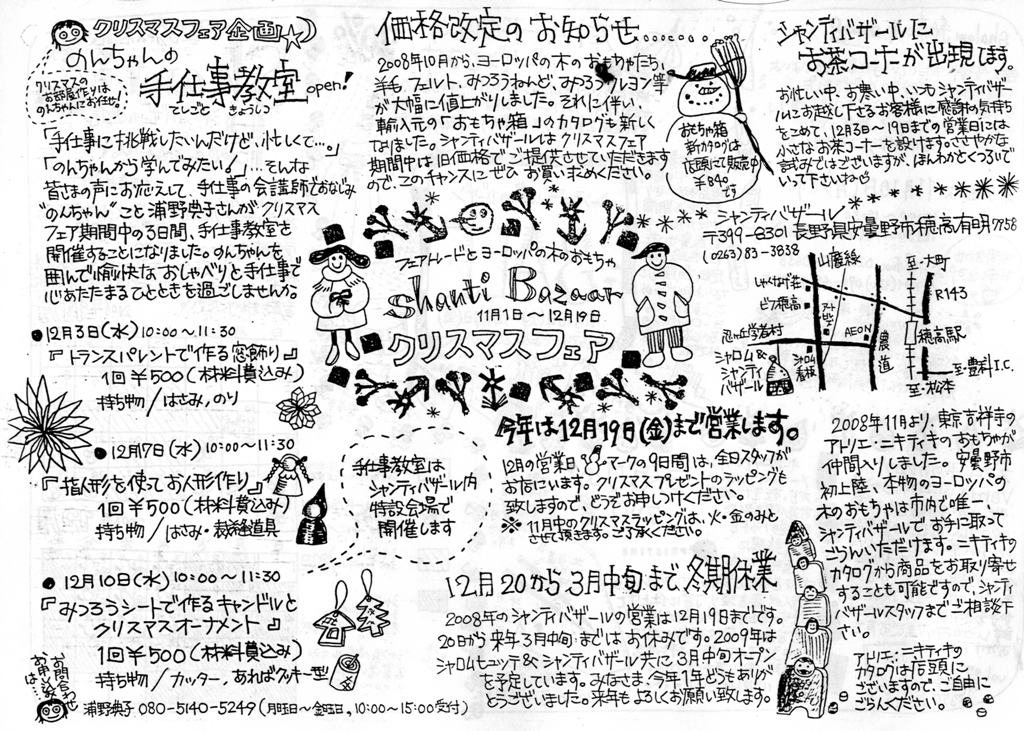 クリスマスフェア企画
のんちゃんの
手仕事教室 open!
てしごと きょうしつ
クリスマスの
お部屋作りは
のんちゃんにお任せ!
「手仕事に挑戦したいんだけど、忙しくて…。」
「のんちゃんから学んでみたい!」…そんな
皆さまの声にお応えして、手仕事の会講師でおなじみ
"のんちゃん"こと浦野典子さんがクリスマス
フェア期間中の3日間、手仕事教室を
開催することになりました。のんちゃんを
囲んで愉快なおしゃべりと手仕事で
心あたたまるひとときを過ごしませんか。
●12月3日(水)10:00〜11:30
『トランスパレントで作る窓飾り』
1回¥500(材料費込み)
持ち物/はさみ,のり
●12月17日(水)10:00〜11:30
『指人形を使ってお人形作り』
1回¥500(材料費込み)
持ち物/はさみ・裁縫道具
●12月10日(水)10:00〜11:30
『みつろうシートで作るキャンドルと
クリスマスオーナメント』
1回¥500(材料費込み)
持ち物/カッター,あればクッキー型
お問い合わせ
お申し込みは…
浦野典子 080-5140-5249(月曜日〜金曜日,10:00〜15:00受付)
手仕事教室は
シャンティバザール内
特設会場で
開催します
価格改定のお知らせ........
2008年10月から、ヨーロッパの木のおもちゃたち、
羊毛フェルト、みつろうねんど、みつろうクレヨン等
が大幅に値上がりしました。それに伴い、
輸入元の「おもちゃ箱」のカタログも新しく
なりました。シャンティバザールはクリスマスフェア
期間中は旧価格でご提供させていただきます
ので、このチャンスにぜひお買い求めください。
おもちゃ箱
新カタログは
店頭にて販売中
¥840
です
フェアトレードとヨーロッパの木のおもちゃ
Shanti Bazaar
11月1日〜12月19日
クリスマスフェア
今年は12月19日(金)まで営業します。
12月の営業日、マークの9日間は、全日スタッフが
お店にいます。クリスマスプレゼントのラッピングも
致しますので、どうぞお申しつけください。
※11月中のクリスマスラッピングは、火・金のみと
させて頂きます。ご了承ください。
12月20から3月中旬まで、冬期休業
2008年のシャンティバザールの営業は12月19日までです。
20日から来年3月中旬まではお休みです。2009年は
シャロムヒュッテ&シャンティバザール共に3月中旬オープン
を予定しています。みなさま、今年1年どうもありが
とうございました。来年もよろしくお願い致します。
シャンティバザールに
お茶コーナーが出現します。
お忙しい中、お寒い中、いつもシャンティバザー
ルにお越し下さるお客様に感謝の気持ち
をこめて、12月3日〜19日までの営業日には
小さなお茶コーナーを設けます。ささやかな
試みではございますが、ほんわかとくつろいで
いって下さいね
シャンティバザール
〒399-8301 長野県安曇野市穂高有明7958
(0263)83-3838
山麓線
至大町
R143
しゃくなげ荘
ビフ穂高
アートヒルズ
AEON
農道
穂高駅
シャロム看板
シャロム&
シャンティ
バザール
至豊科I.C.
至松本
2008年11月より、東京吉祥寺の
アトリエ・ニキティキのおもちゃが
仲間入りしました。安曇野市
初上陸、本物のヨーロッパの
木のおもちゃは市内で唯一、
シャンティバザールでお手に取って
ごらんいただけます。ニキティキの
カタログから商品をお取り寄せ
することも可能ですので、シャンティ
バザールスタッフまでご相談下
さい。
アトリエ・ニキティキの
カタログは店頭に
ございますので、ご自由に
ごらんください。